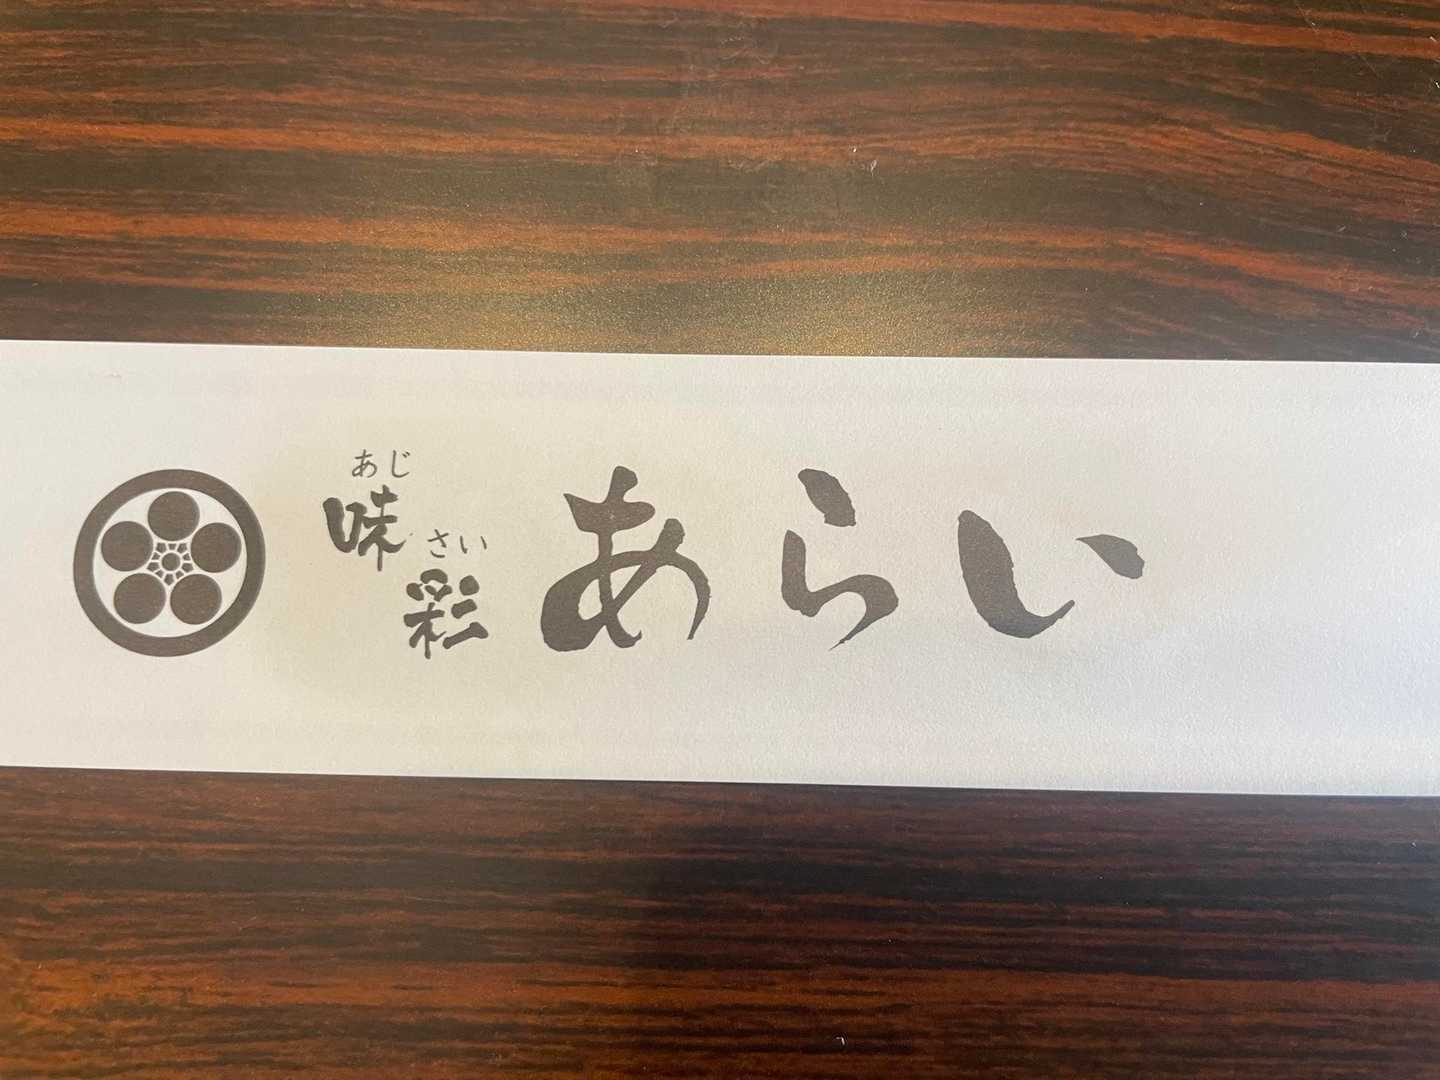 あじ
味
さい
彩
あらい